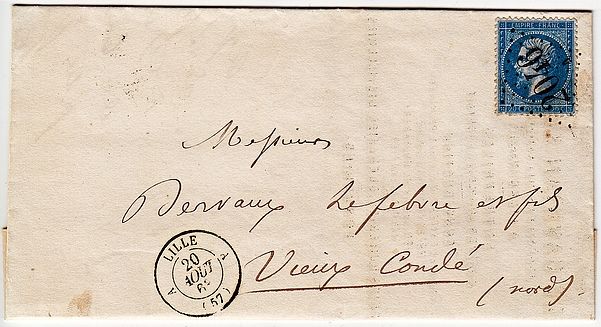 EMPIRE FRANC
2046
Messieurs
Dervaux Lefebvre et fils
Vieux Condé
(nord)
A LILLE A
20
AOUT
(57)